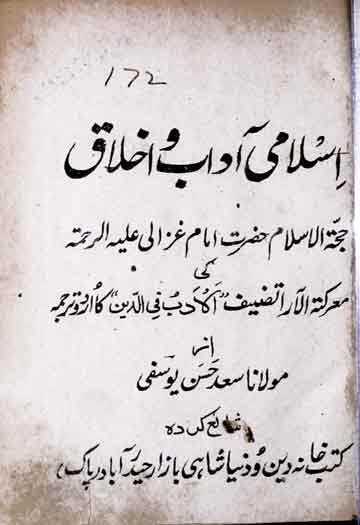 172
اِسلامی آداب و اخلاق
حجۃ الاسلام حضرت امام غزالی علیہ الرحمۃ
کی
معرکتہ الآرا تصنیف "اَلاَدَبُ فِی الدِّین" کا اُردو ترجمہ
از
مولانا سعد حَسَن یوسفی
شائع کردہ
کتب خانہ دین و دُنیا شاہی بازار حیدرآباد (پاک)